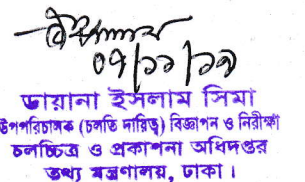 ০৭/১১/১৯
ডায়ানা ইসলাম সিমা
উপপরিচালক (চলতি দায়িত্ব) বিজ্ঞাপন ও নিরীক্ষা
চলচ্চিত্র ও প্রকাশনা অধিদপ্তর
তথ্য মন্ত্রণালয়, ঢাকা।